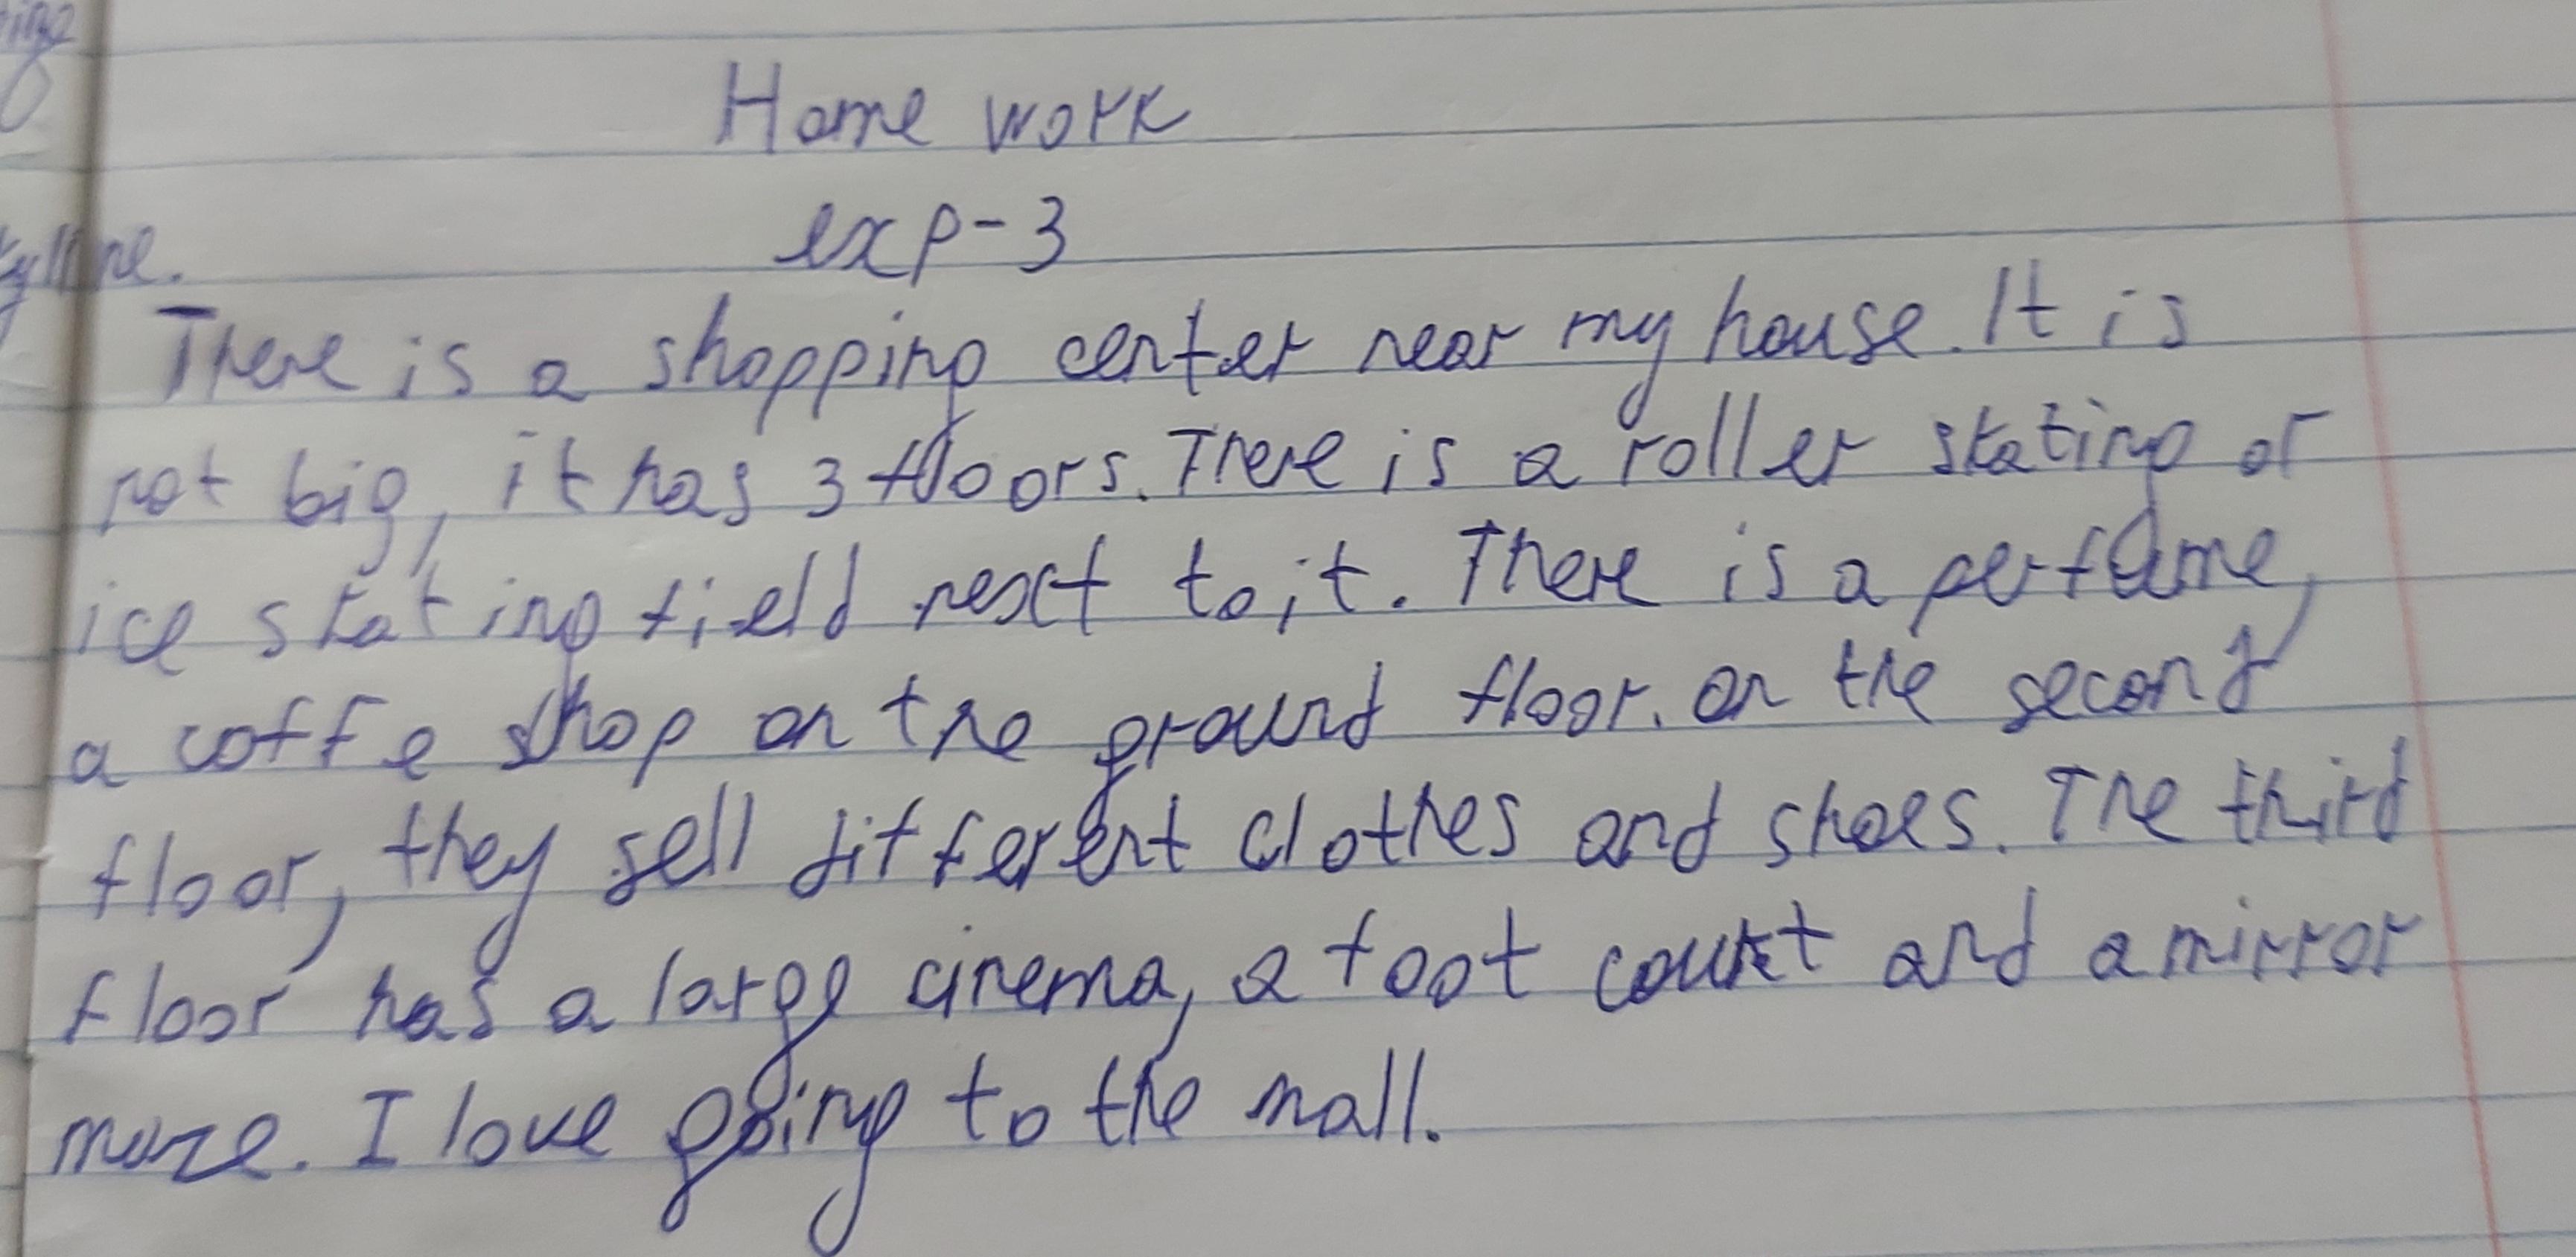 Home work
exp-3
There is a shopping center near my house. It is
not big, it has 3 floors. There is a roller skating or
ice skating field next to it. There is a perfume,
a coffe shop on the ground floor. on the second
floor, they sell different clothes and shoes. The third
floor has a large cinema, a foot court and a mirror
maze. I love going to the mall.